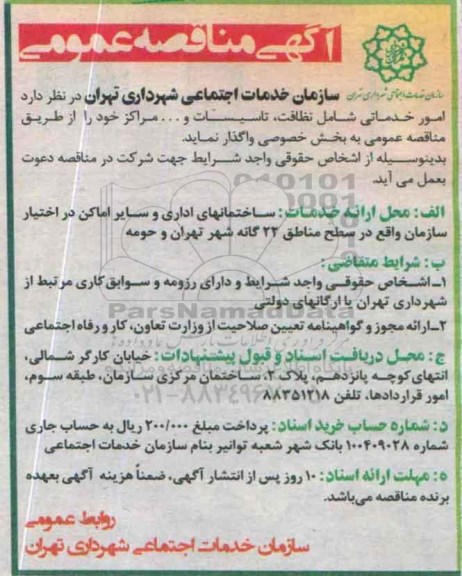 آگهی مناقصه عمومی
سازمان خدمات اجتماعی شهرداری تهران
سازمان خدمات اجتماعی شهرداری تهران در نظر دارد
امور خدماتی شامل نظافت، تاسیسات و... مراکز خود را از طریق
مناقصه عمومی به بخش خصوصی واگذار نماید.
بدینوسیله از اشخاص حقوقی واجد شرایط جهت شرکت در مناقصه دعوت
بعمل می آید.
الف: محل ارائه خدمات: ساختمانهای اداری و سایر اماکن در اختیار
سازمان واقع در سطح مناطق ۲۲ گانه شهر تهران و حومه
ب: شرایط متقاضی:
۱ـ اشخاص حقوقی واجد شرایط و دارای رزومه و سوابق کاری مرتبط از
شهرداری تهران یا ارگانهای دولتی
ParsNamadData
۲ـ ارائه مجوز و گواهینامه تعیین صلاحیت از وزارت تعاون، کار و رفاه اجتماعی
ج: محل دریافت اسناد و قبول پیشنهادات: خیابان کارگر شمالی،
انتهای کوچه پانزدهم، پلاک ۲، ساختمان مرکزی سازمان، طبقه سوم،
امور قراردادها. تلفن ۸۸۳۵۱۲۱۸
د: شماره حساب خرید اسناد: پرداخت مبلغ ۲۰۰/۰۰۰ ریال به حساب جاری
شماره ۱۰۰۴۰۹۰۲۸ بانک شهر شعبه توانیر بنام سازمان خدمات اجتماعی
ه: مهلت ارائه اسناد: ۱۰ روز پس از انتشار آگهی، ضمناً هزینه آگهی بعهده
برنده مناقصه می‌باشد.
روابط عمومی
سازمان خدمات اجتماعی شهرداری تهران